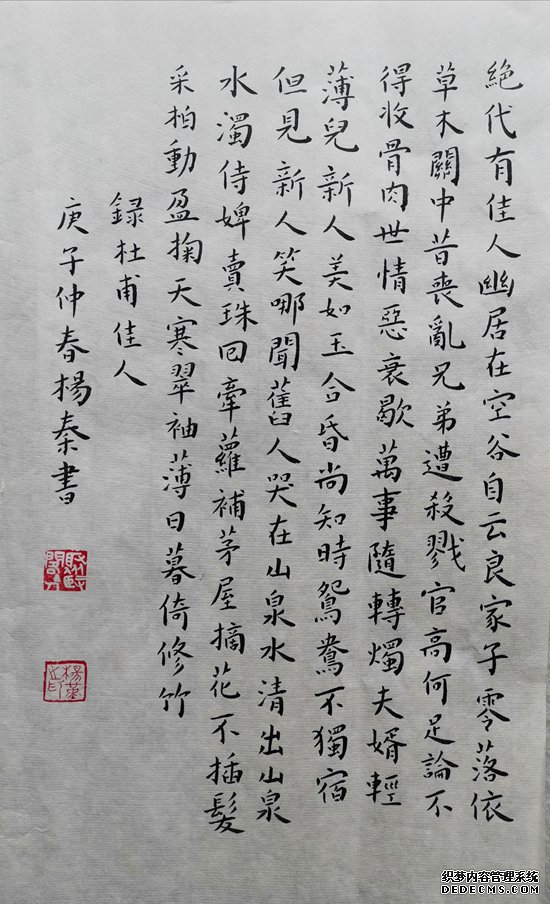 絕代有佳人幽居在空谷自云良家子零落依
草木關中昔喪亂兄弟遭殺戮官高何足論不
得收骨肉世情惡衰歇萬事隨轉燭夫婿輕
薄兒新人美如玉合昏尚知時鴛鴦不獨宿
但見新人笑哪聞舊人哭在山泉水清出山泉
水濁侍婢賣珠回牽蘿補茅屋摘花不插髮
采柏動盈掬天寒翠袖薄日暮倚修竹
録杜甫佳人
庚子仲春楊秦書
织梦内容管理系统
DEDECMS.COM